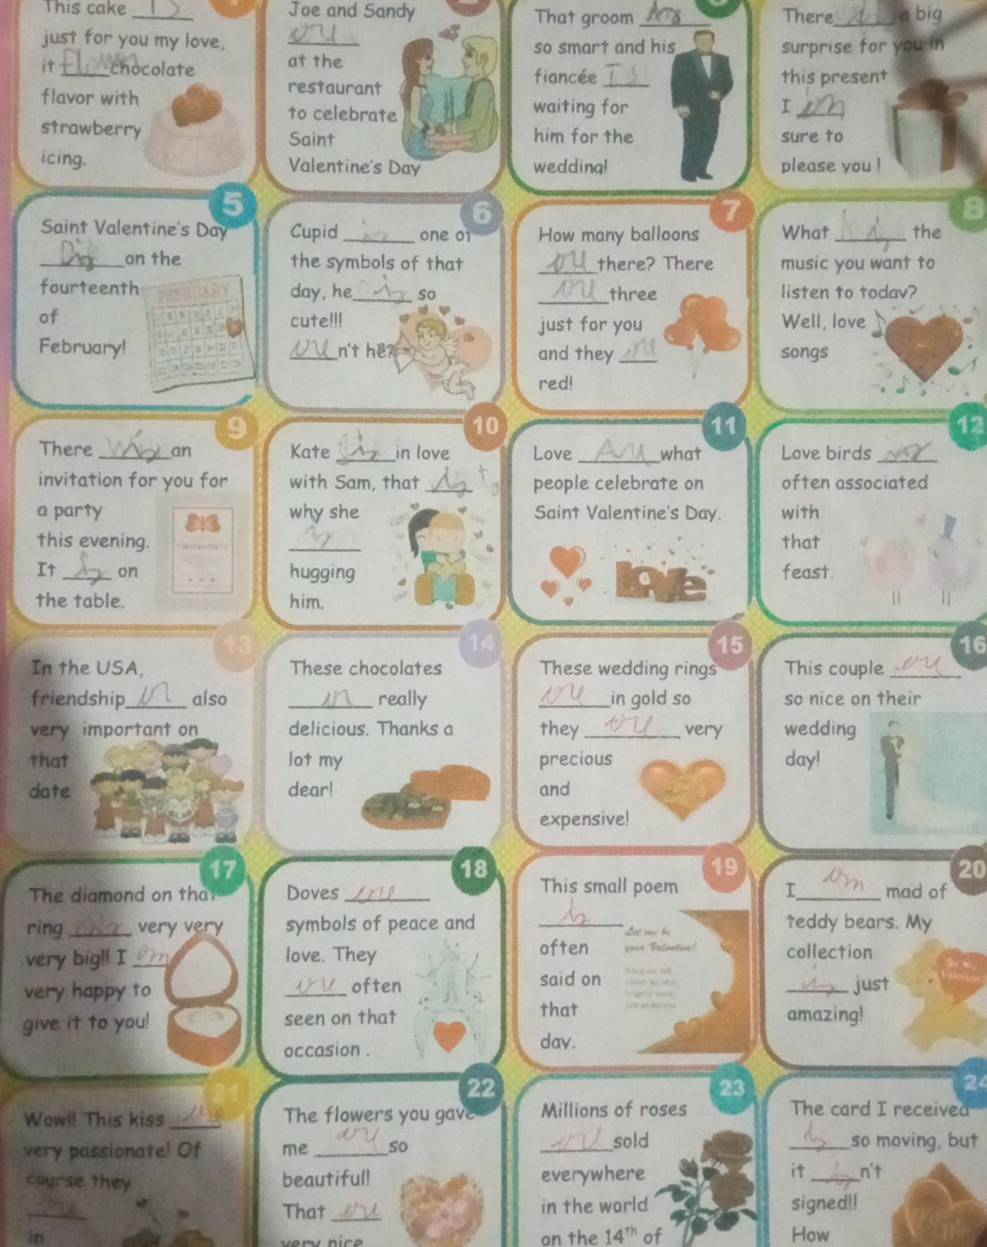 This cake is
just for you my love,
it chocolate
flavor with
strawberry
icing.
Joe and Sandy
are
at the
restaurant
to celebrate
Saint
Valentine's Day
That groom
so smart and his
fiancée is
waiting for
him for the
wedding!
There a big
surprise for you in
this present
I am
sure to
please you !
5
Saint Valentine's Day
is on the
fourteenth
of
February!
FEBRUARY
6
Cupid is one of
the symbols of that
day, he is so
cute!!!
are n't he?
7
How many balloons
are there? There
are three
just for you
and they are
red!
8
What is the
music you want to
listen to today?
Well, love
songs
9
There is an
invitation for you for
a party
this evening.
It is on
the table.
10
Kate is in love
with Sam, that is
why she
is
hugging
him.
11
Love are what
people celebrate on
Saint Valentine's Day.
love
12
Love birds
often associated
with
that
feast.
13
In the USA,
friendship also
very important on
that
date
14
These chocolates
really
delicious. Thanks a
lot my
dear!
15
These wedding rings
are in gold so
they are very
precious
and
expensive!
16
This couple are
so nice on their
wedding
day!
17
The diamond on that
ring very very
very big!! I am
very happy to
give it to you!
18
Doves are
symbols of peace and
love. They
are often
seen on that
occasion .
19
This small poem
is
often
said on
that
day.
Let me be
your Valentine!
20
I am mad of
teddy bears. My
collection
is just
amazing!
Be My
Valentine
21
Wow!! This kiss
very passionate! Of
course they
are
in
22
The flowers you gave
me are so
beautiful!
That are
very nice
23
Millions of roses
are sold
everywhere
in the world
on the 14th of
24
The card I received
is so moving, but
it is n't
signed!!
How